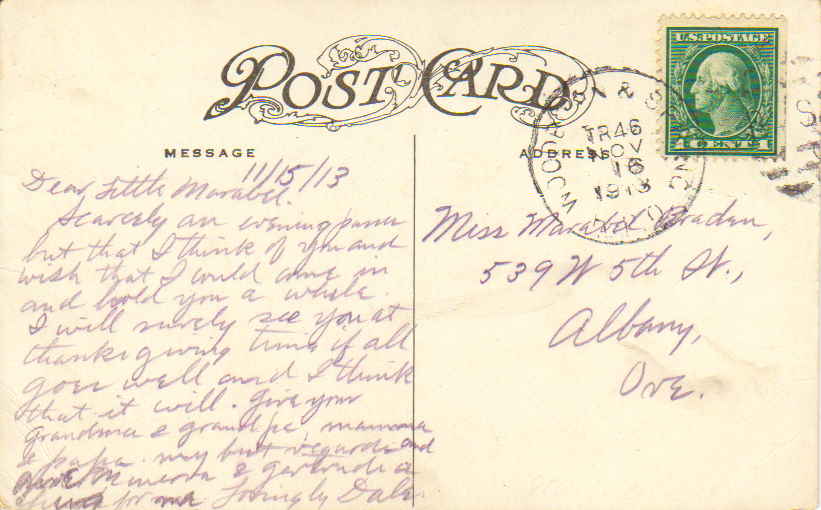 POST CARD
U.S. POSTAGE
1 CENTS 1
TR 46
NOV
16
1913
MESSAGE
ADDRESS
11/15/13
Dear Little Marabel.
Scarcely an evening passes
but that I think of you and
wish that I could come in
and hold you a while.
I will surely see you at
thanksgiving time if all
goes well and I think
that it will. Give your
Grandma & grandpa, mamma
& papa my best regards and
Minerva & Gertrude a
for me Lovingly Dale.
Miss Marabel Braden,
539 W 5th St.,
Albany,
Ore.